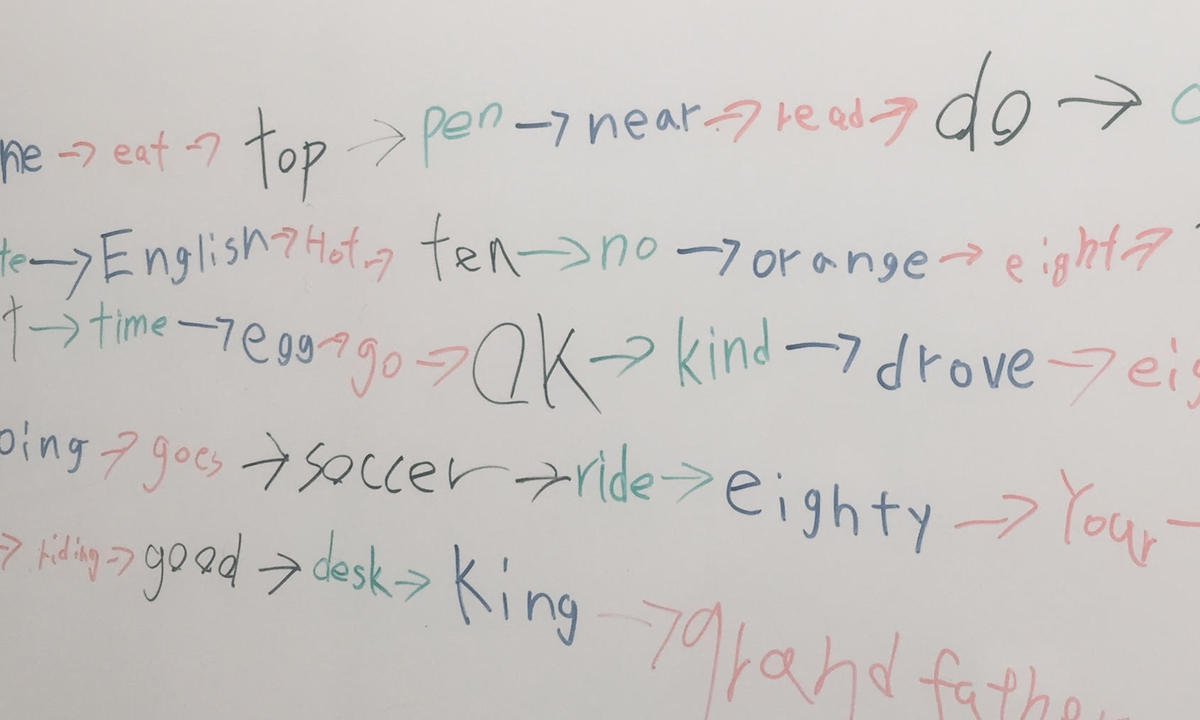 ne → eat → top → pen → near → read → do →
te → English → Hot → ten → no → orange → eight →
t → time → egg → go → OK → kind → drove → eig
oing → goes → soccer → ride → eighty → Your →
→ riding → good → desk → King → grand fathe